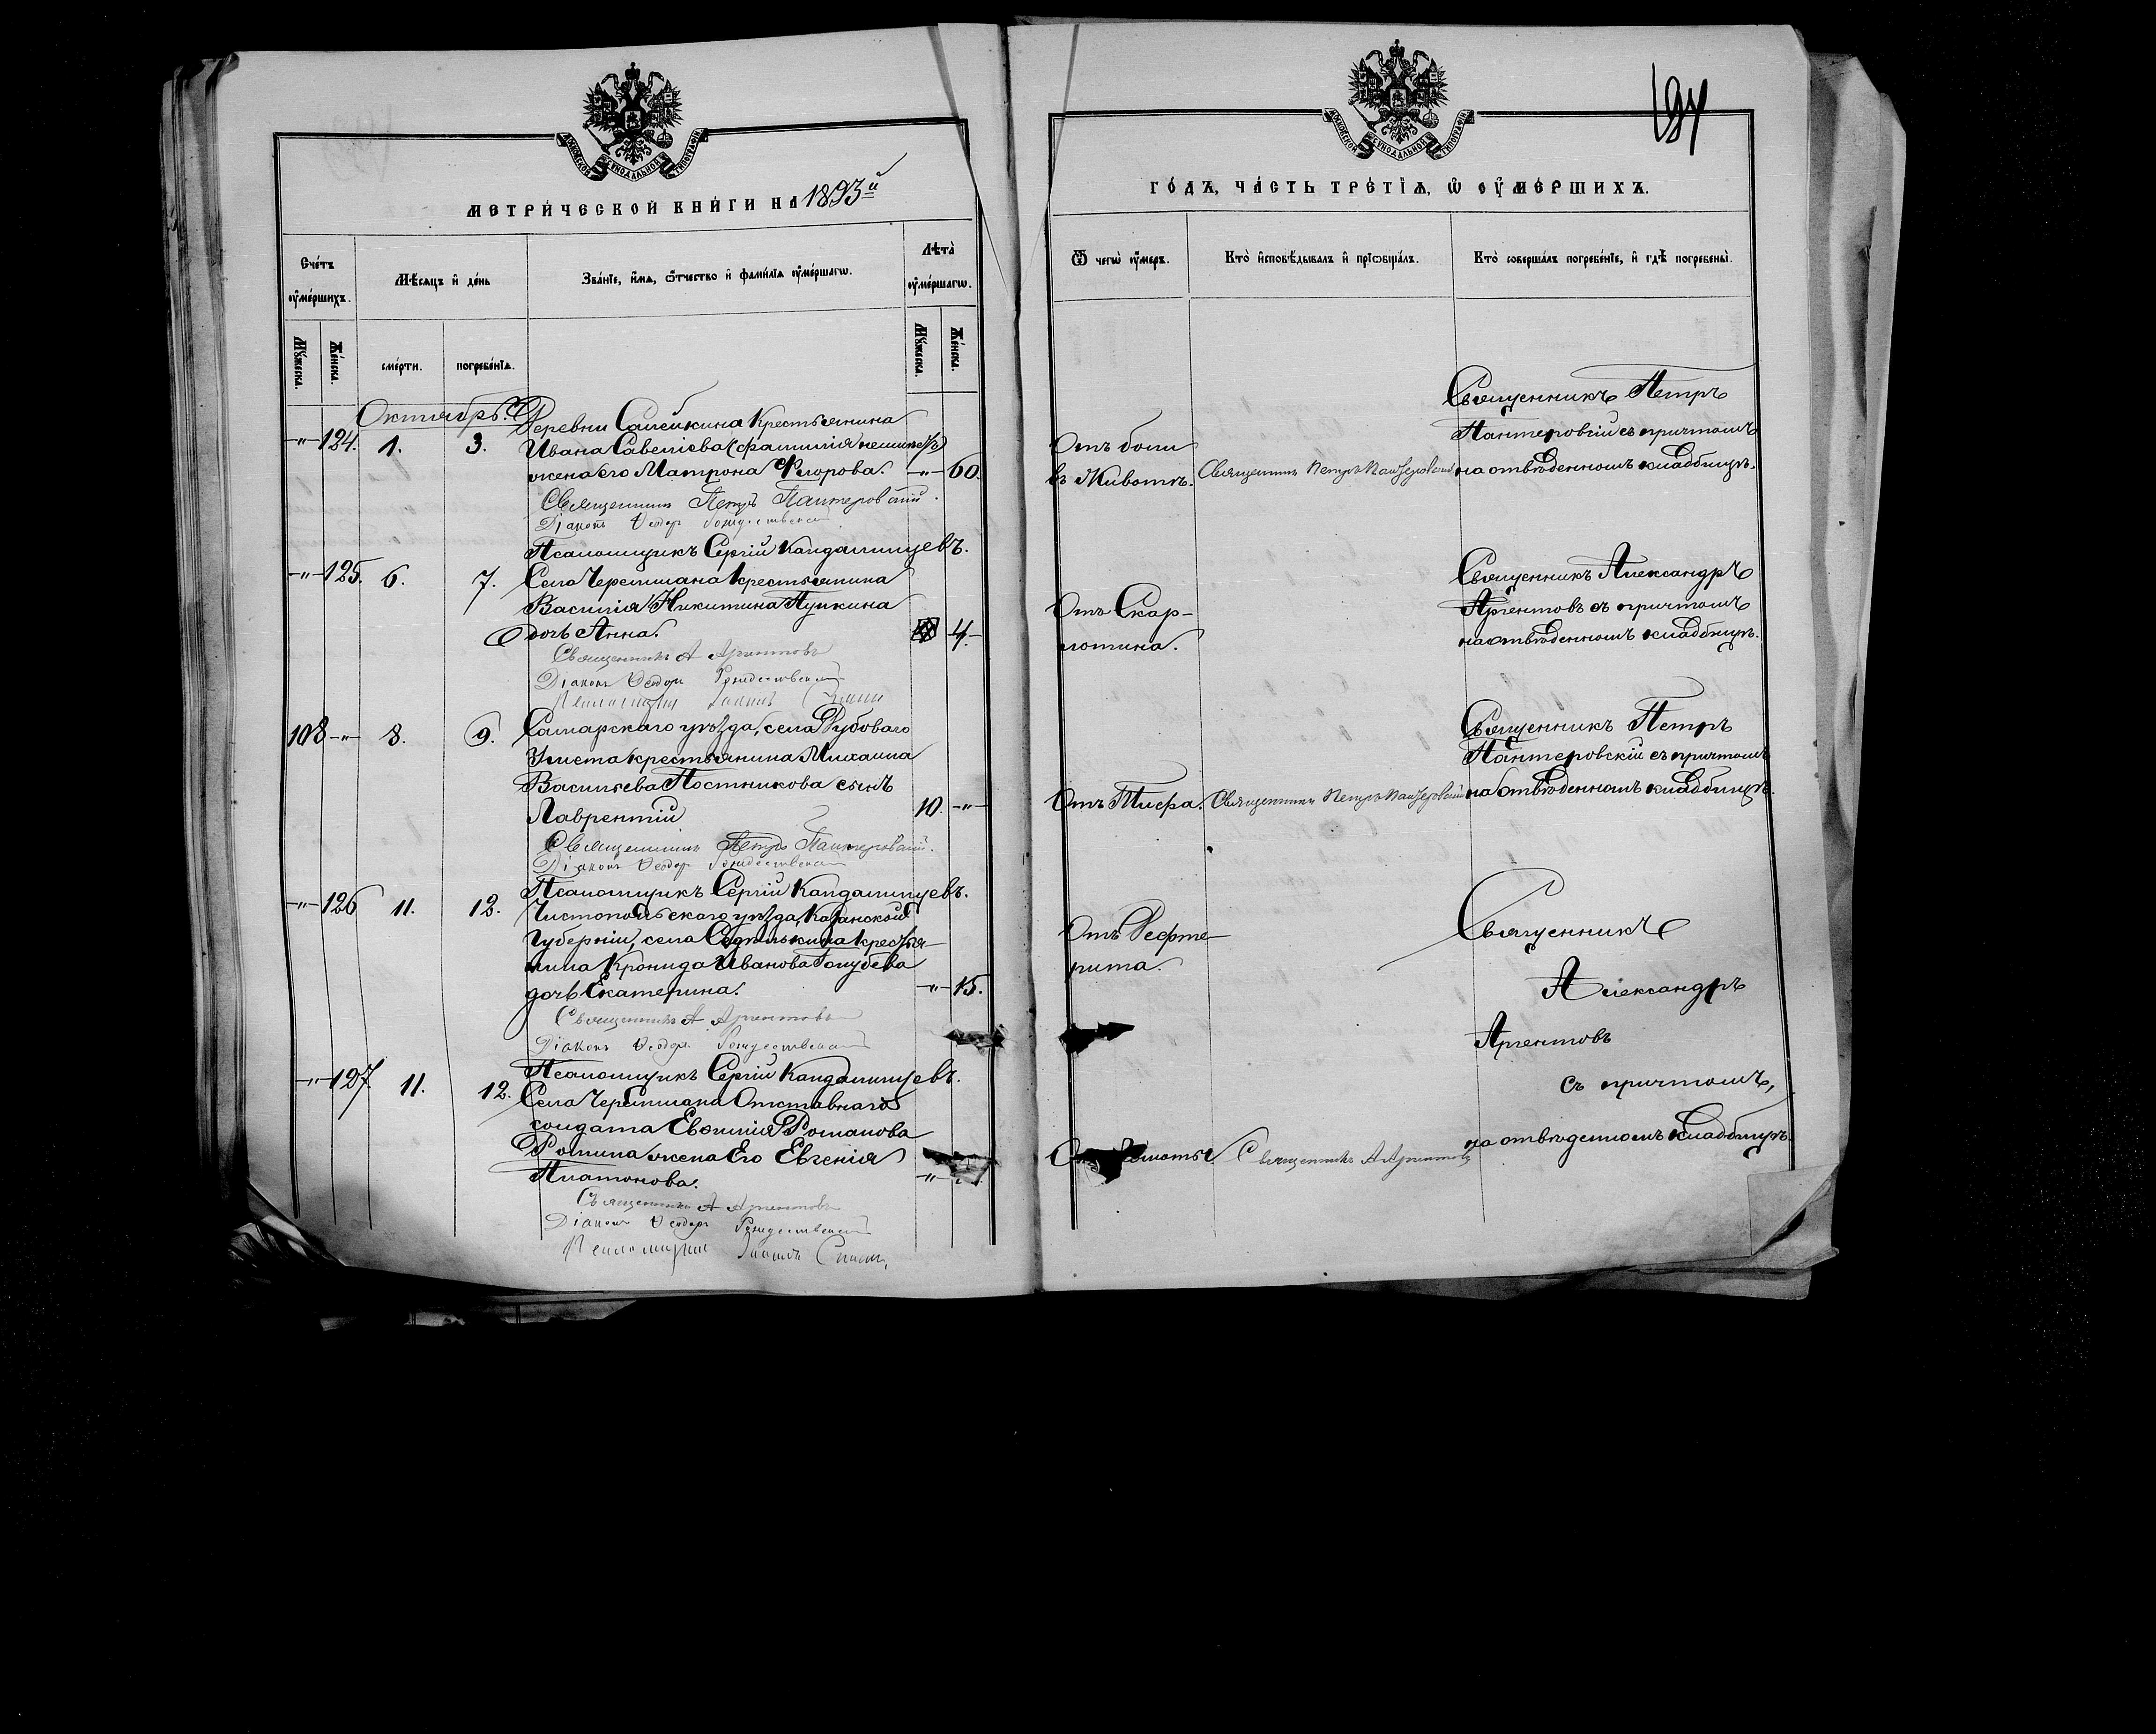 МОСКОВСКОЙ СѴНОДАЛЬНОЙ ТИПОГРАФІИ
МЕТРИ́ЧЕСКОЙ КНИ́ГИ НА 1893й
Сче́тъ ᲂу҆ме́ршихъ.
Мѣ́сяцъ и҆ де́нь
Зва́нїе, и҆́мѧ, ѻ҆́тчество и҆ фами́лїѧ ᲂу҆ме́ршагѡ.
Лѣ́та ᲂу҆ме́ршагѡ.
Мꙋ́жеска.
Же́нска.
сме́рти.
погребе́нїѧ.
Мꙋ́жеска.
Же́нска.
Октябрь.
-"- 124. 1. 3. Деревни Крестьянина
Ивана Савельева (фамиліи неимеетъ)
жена его Матрона Флорова. -"- 60.
Священникъ Петръ Пантеровскій.
Діаконъ Ѳеодоръ Рождественскій
Псаломщикъ Сергій Кандалинцевъ.
-"- 125. 6. 7. Села Черемшана крестьянина
Василія Никитина Пупкина
дочь Анна. 4.-
Священникъ А Аргентовъ
Діаконъ Ѳеодоръ Рождественскій
Псаломщикъ Іоаннъ
108 -"- 8. 9. Самарскаго уѣзда, села Дубоваго
Умета крестьянина Михаила
Васильева Постникова сынъ
Лаврентій 10. -"-
Священникъ Петръ Пантеровскій.
Діаконъ Ѳеодоръ Рождественскій
Псаломщикъ Сергій Кандалинцевъ.
-"- 126 11. 12. Чистопольскаго уѣзда, Казанской
Губерніи, села крестья-
нина Кронида Иванова Голубева
дочь Екатерина. -"- 15.
Священникъ А Аргентовъ
Діаконъ Ѳеодоръ Рождественскій
Псаломщикъ Сергій Кандалинцевъ.
-"- 127 11. 12. Села Черемшана Отставнаго
солдата Евѳимія Романова
жена Его Евгенія
Платонова. -"-
Священникъ А Аргентовъ
Діаконъ Ѳеодоръ Рождественскій
Псаломщикъ Іоаннъ
МОСКОВСКОЙ СѴНОДАЛЬНОЙ ТИПОГРАФІИ
ГО́ДЪ, ЧА́СТЬ ТРЕ́ТЇѦ, Ѽ ᲂУ҆МЕ́РШИХЪ.
Ѿ чегѡ̀ ᲂу҆́меръ.
Кто̀ и҆сповѣ́дывалъ и҆ прїѡбща́лъ.
Кто̀ соверша́лъ погребе́нїе, и҆ гдѣ̀ погребены̀.
Священникъ Петръ
Отъ боли Пантеровскій съ причтомъ
въ животѣ. Священникъ Петръ Пантеровскій на отведенномъ кладбищѣ.
Священникъ Александръ
Отъ Скар- Аргентовъ съ причтомъ
лотина. на отведенномъ кладбищѣ.
Священникъ Петръ
Пантеровскій съ причтомъ
Отъ Тифа. Священникъ Петръ Пантеровскій на отведенномъ кладбищѣ.
Священникъ
Отъ Дефте-
рита.
Александръ
Аргентовъ
съ причтомъ,
Священникъ А Аргентовъ на отведенномъ кладбищѣ.